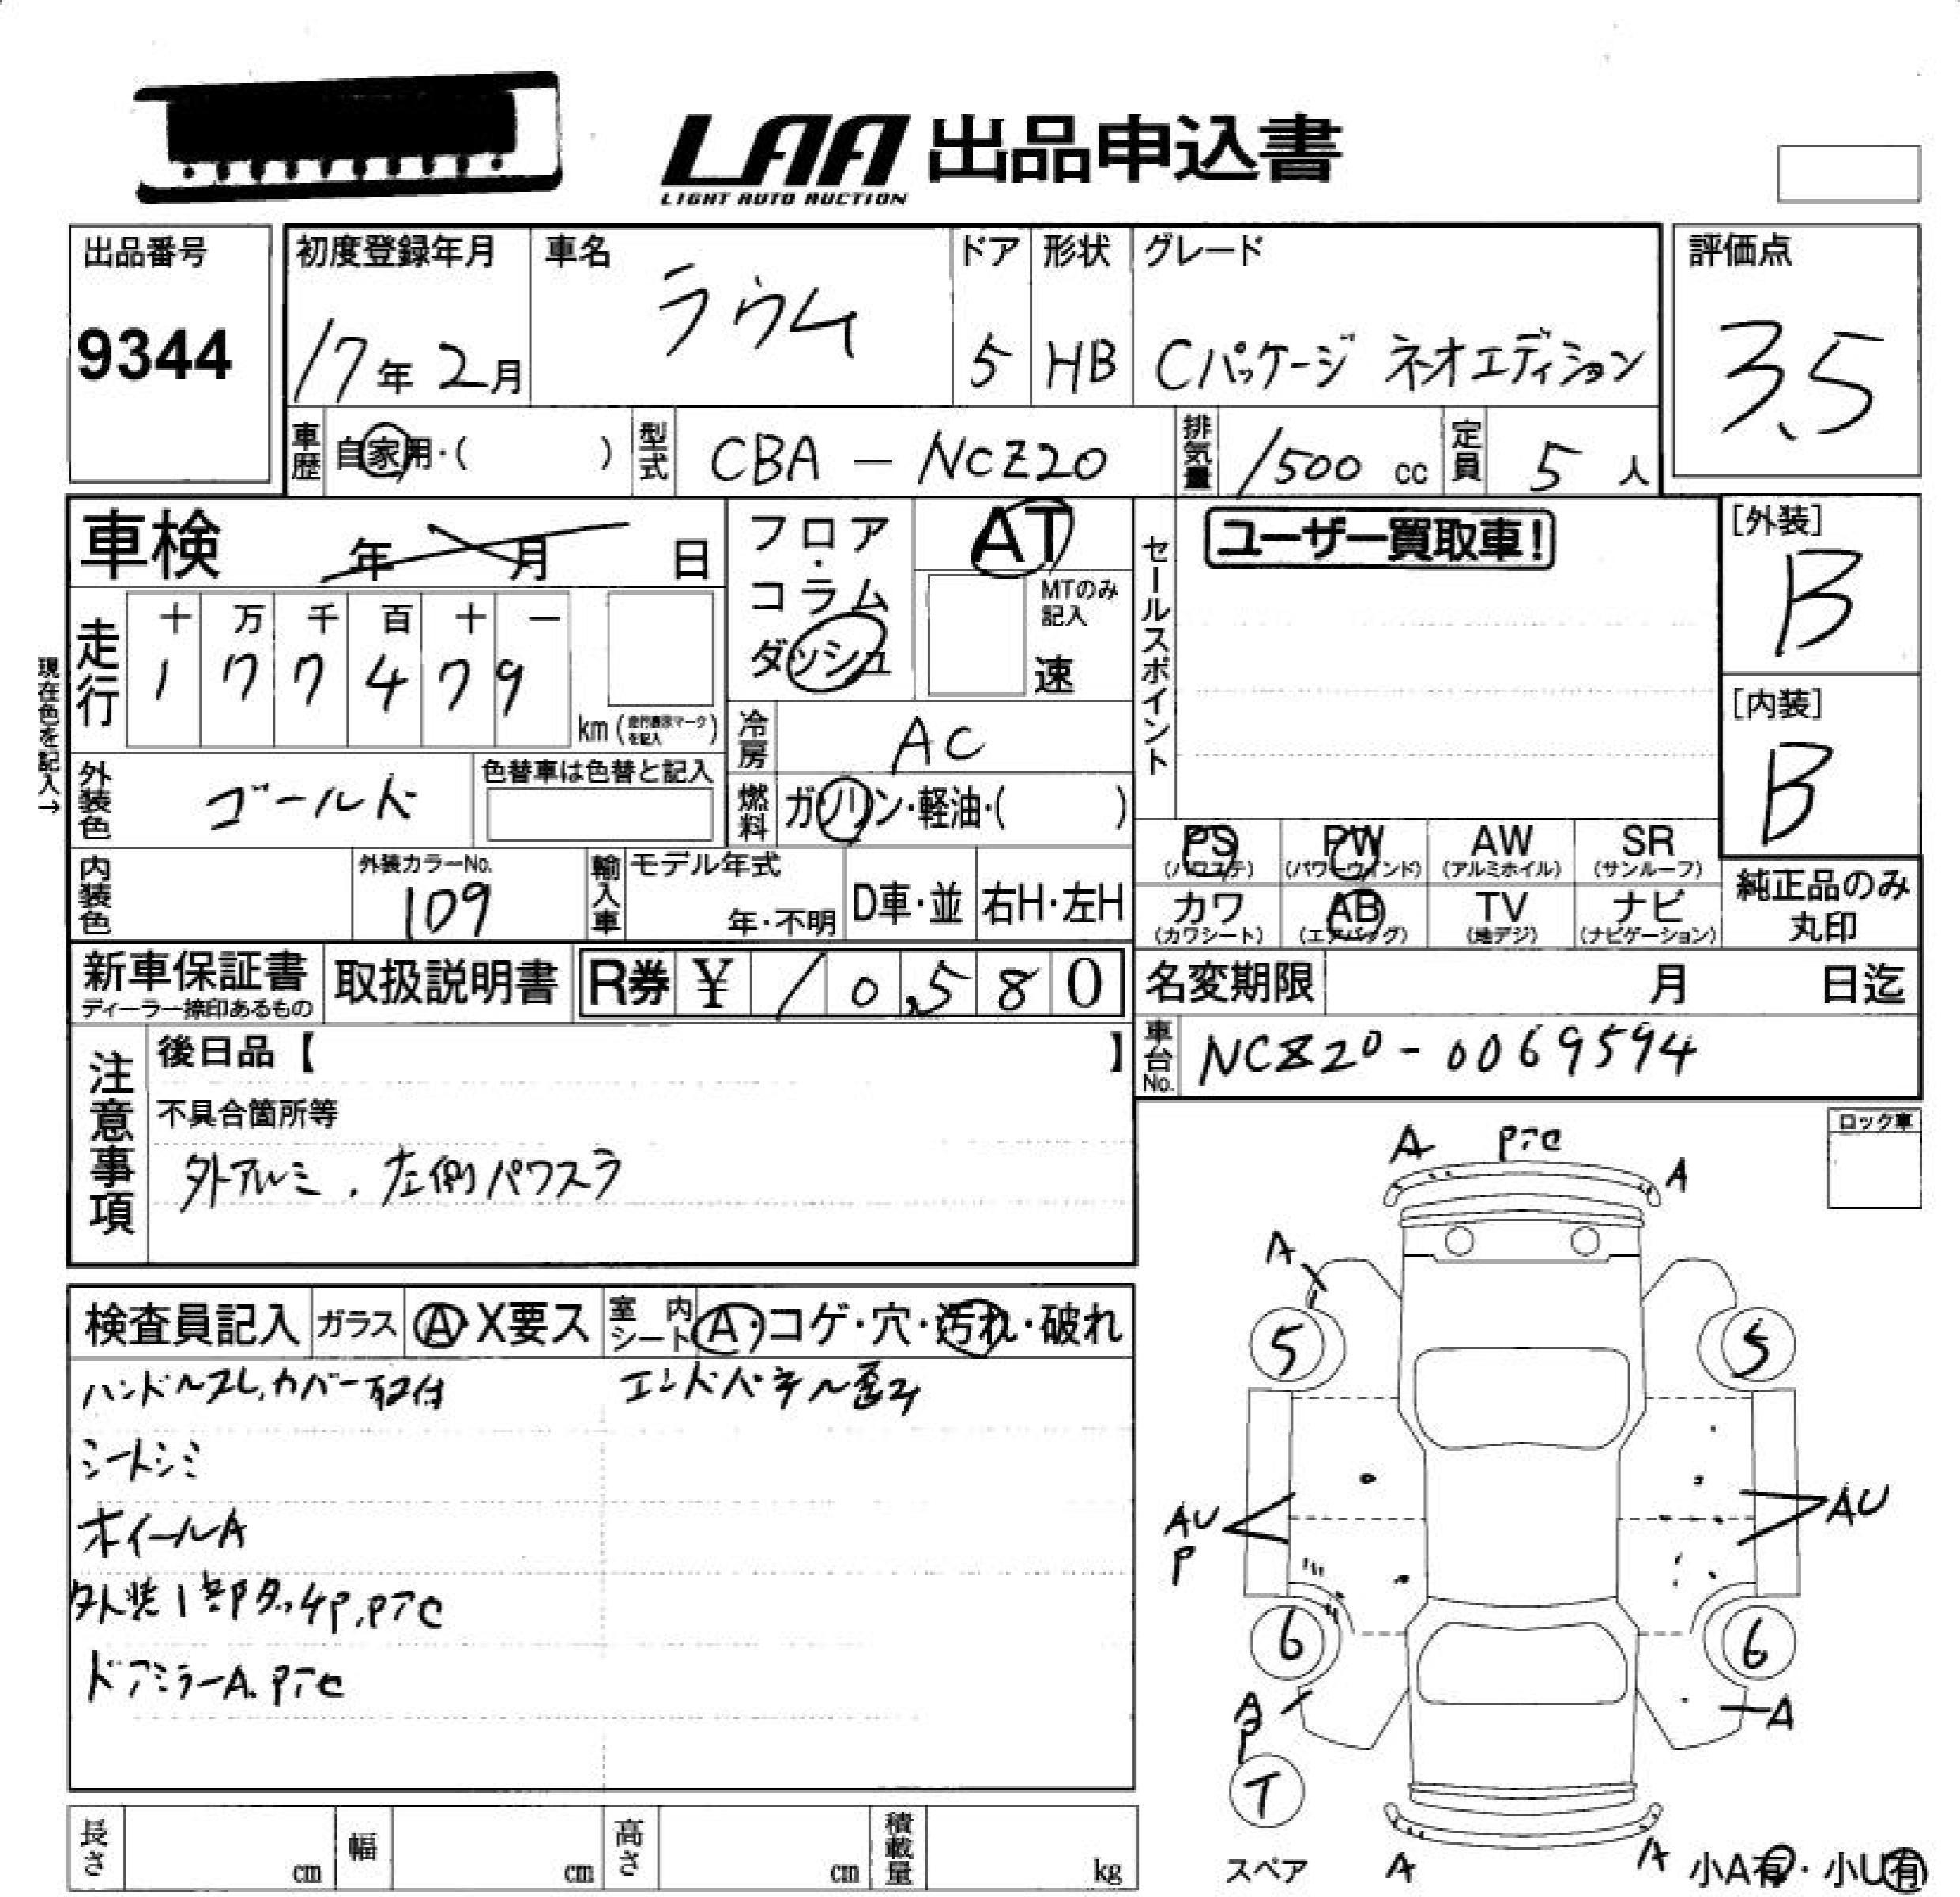 LAA 出品申込書
LIGHT AUTO AUCTION
出品番号
9344
初度登録年月
17年 2月
車名
ラウム
ドア
5
形状
HB
グレード
Cパッケージ ネオエディション
評価点
3.5
車歴
自家用・( )
型式
CBA - NCZ20
排気量
1500 cc
定員
5 人
車検 年 月 日
フロア・コラム
ダッシュ
AT
MTのみ記入
速
セールスポイント
ユーザー買取車!
[外装]
B
[内装]
B
現在色を記入→
走行
十 万 千 百 十 一
1 7 7 4 7 9
km (走行表示マークを記入)
冷房
AC
外装色
ゴールド
色替車は色替と記入
燃料
ガソリン・軽油・( )
内装色
外装カラーNo.
109
輸入車
モデル年式
年・不明
D車・並
右H・左H
PS (パワステ)
PW (パワーウインド)
AW (アルミホイル)
SR (サンルーフ)
カワ (カワシート)
AB (エアバッグ)
TV (地デジ)
ナビ (ナビゲーション)
純正品のみ丸印
新車保証書
ディーラー捺印あるもの
取扱説明書
R券 ¥ 10,580
名変期限 月 日迄
車台No.
NCZ20-0069594
注意事項
後日品【 】
不具合箇所等
外アルミ、左側パワスラ
ロック車
検査員記入
ガラス
A・X要ス
室内シート
A・コゲ・穴・汚れ・破れ
ハンドルスレ,カバー取付
エンドパネル歪み
シートシミ
ホイールA
外装1部タッチP,PTC
ドアミラーA.PTC
A PTC A
A
5
5
AU
P
AU
6
6
A
P
A
T
スペア
A
A
小A有・小U有
長さ cm
幅 cm
高さ cm
積載量 kg